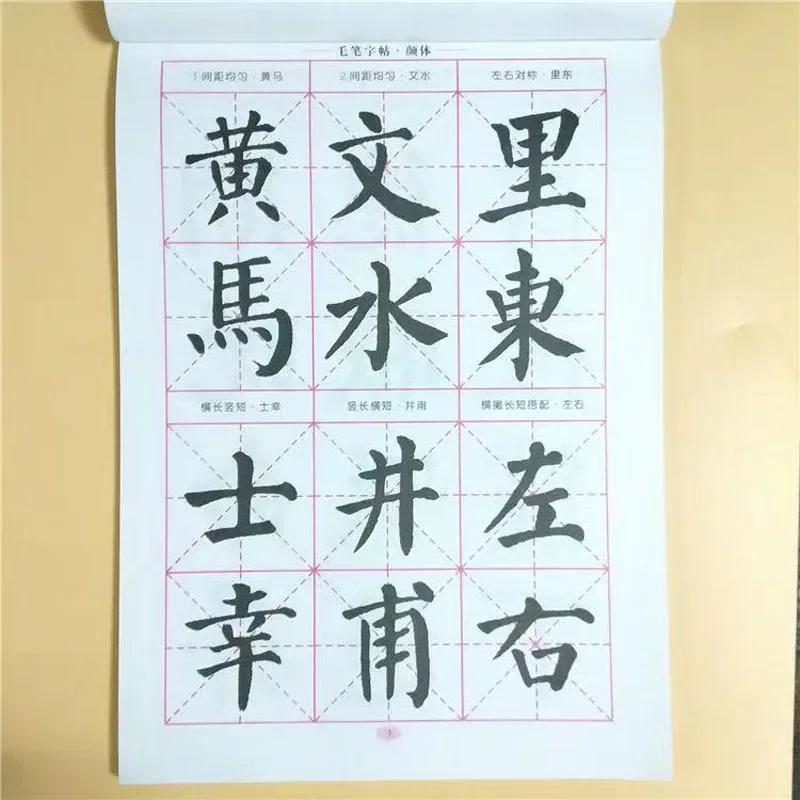 毛笔字帖·颜体
1.间距均匀·黄马 2.间距均匀·文水 左右对称·里东
黄 文 里
馬 水 東
横长竖短·士幸 竖长横短·井甫 横撇长短搭配·左右
士 井 左
幸 甫 右